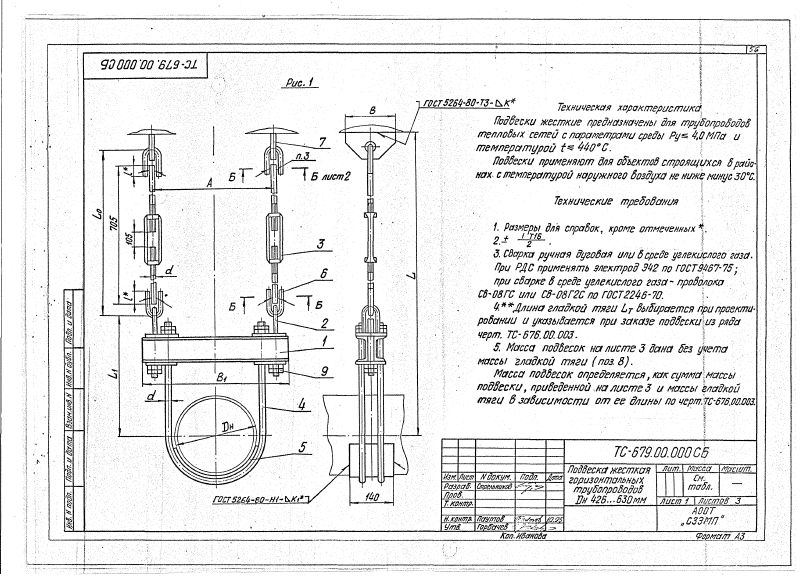 56
ТС-679.00.000СБ
Рис. 1
ГОСТ 5264-80-Т3-⊿К*
В
7
п.3
Б
Б лист 2
А
L₀
705
105
l*
3
d
6
l*
Б
Б
2
1
L₁
B₁
9
d
4
Dн
5
L
140
ГОСТ 5264-80-Н1-⊿К₁*
Техническая характеристика
Подвески жесткие предназначены для трубопроводов
тепловых сетей с параметрами среды Ру ≤ 4,0 МПа и
температурой t ≤ 440°С.
Подвески применяют для объектов строящихся в райо-
нах с температурой наружного воздуха не ниже минус 30°С.
Технические требования
1. Размеры для справок, кроме отмеченных *.
2. ± IT16/2.
3. Сварка ручная дуговая или в среде углекислого газа.
При РДС применять электрод Э42 по ГОСТ 9467-75;
при сварке в среде углекислого газа - проволока
Св-08ГС или Св-08Г2С по ГОСТ 2246-70.
4.** Длина гладкой тяги Lт выбирается при проекти-
ровании и указывается при заказе подвески из ряда
черт. ТС-676.00.003.
5. Масса подвесок на листе 3 дана без учета
массы гладкой тяги (поз. 8).
Масса подвесок определяется, как сумма массы
подвески, приведенной на листе 3 и массы гладкой
тяги в зависимости от ее длины по черт. ТС-676.00.003.
ТС-679.00.000СБ
Изм. Лист N докум. Подп. Дата
Разраб.
Пров.
Т. контр.
Н. контр. Паутов
Утв. Горбачев
Подвеска жесткая
горизонтальных
трубопроводов
Dн 426...630 мм
Лит. Масса Масшт.
См.
табл.
—
Лист 1 Листов 3
АООТ
„СЗЭМП"
Коп. Иванова
Формат А3
Инв. N подл. Подп. и дата Взам. инв. N Инв. N дубл. Подп. и дата